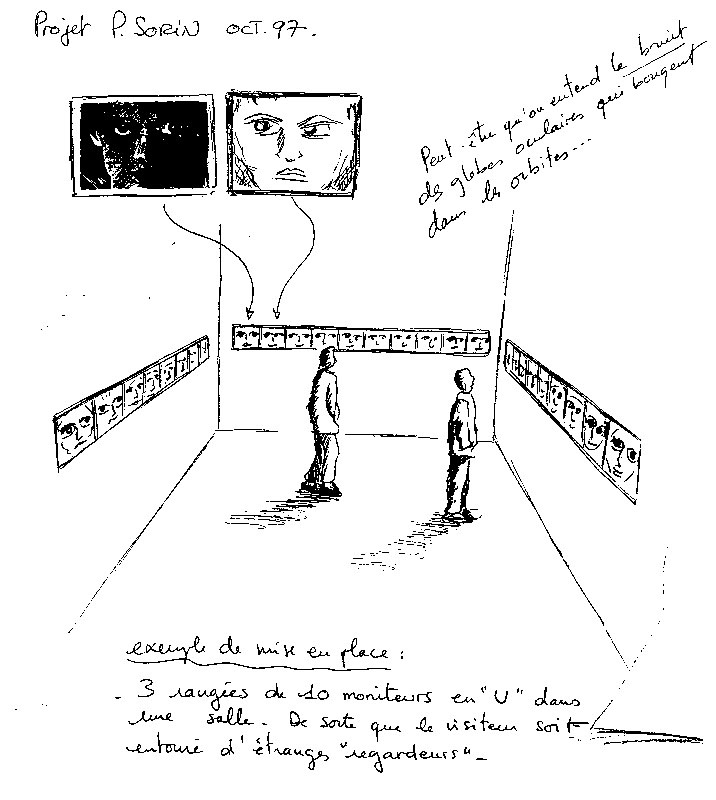 Projet P. SORIN OCT. 97.
Peut-être qu'on entend le bruit
des globes oculaires qui bougent
dans les orbites...
exemple de mise en place :
- 3 rangées de 10 moniteurs en "U" dans
une salle. De sorte que le visiteur soit
entouré d'étranges "regardeurs".